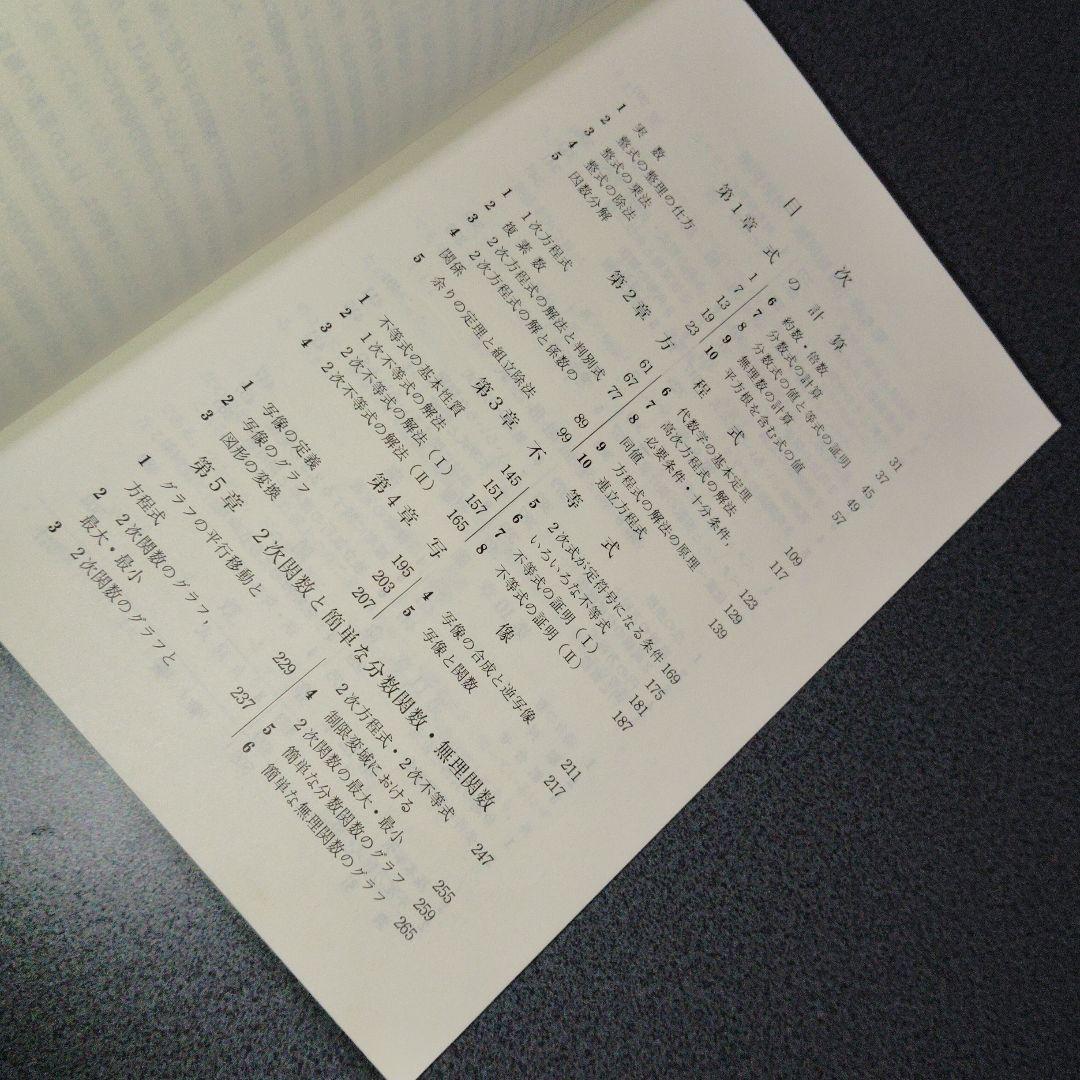 目次
第1章 式の計算
1 実数 1
2 整式の整理の仕方 7
3 整式の乗法 13
4 整式の除法 19
5 因数分解 23
6 約数・倍数 31
7 分数式の計算 37
8 分数式の値と等式の証明 45
9 無理数の計算 49
10 平方根を含む式の値 57
第2章 方程式
1 1次方程式 61
2 複素数 67
3 2次方程式の解法と判別式 77
4 2次方程式の解と係数の
関係 89
5 余りの定理と組立除法 99
6 代数学の基本定理 109
7 高次方程式の解法 117
8 必要条件・十分条件,
同値 123
9 方程式の解法の原理 129
10 連立方程式 139
第3章 不等式
1 不等式の基本性質 145
2 1次不等式の解法 151
3 2次不等式の解法(I) 157
4 2次不等式の解法(II) 165
5 2次式が定符号になる条件 169
6 いろいろな不等式 175
7 不等式の証明(I) 181
8 不等式の証明(II) 187
第4章 写像
1 写像の定義 195
2 写像のグラフ 203
3 図形の変換 207
4 写像の合成と逆写像 211
5 写像と関数 217
第5章 2次関数と簡単な分数関数・無理関数
1 グラフの平行移動と
方程式 229
2 2次関数のグラフ,
最大・最小 237
3 2次関数のグラフと
2次方程式・2次不等式 247
4 制限変域における
2次関数の最大・最小 255
5 簡単な分数関数のグラフ 259
6 簡単な無理関数のグラフ 265